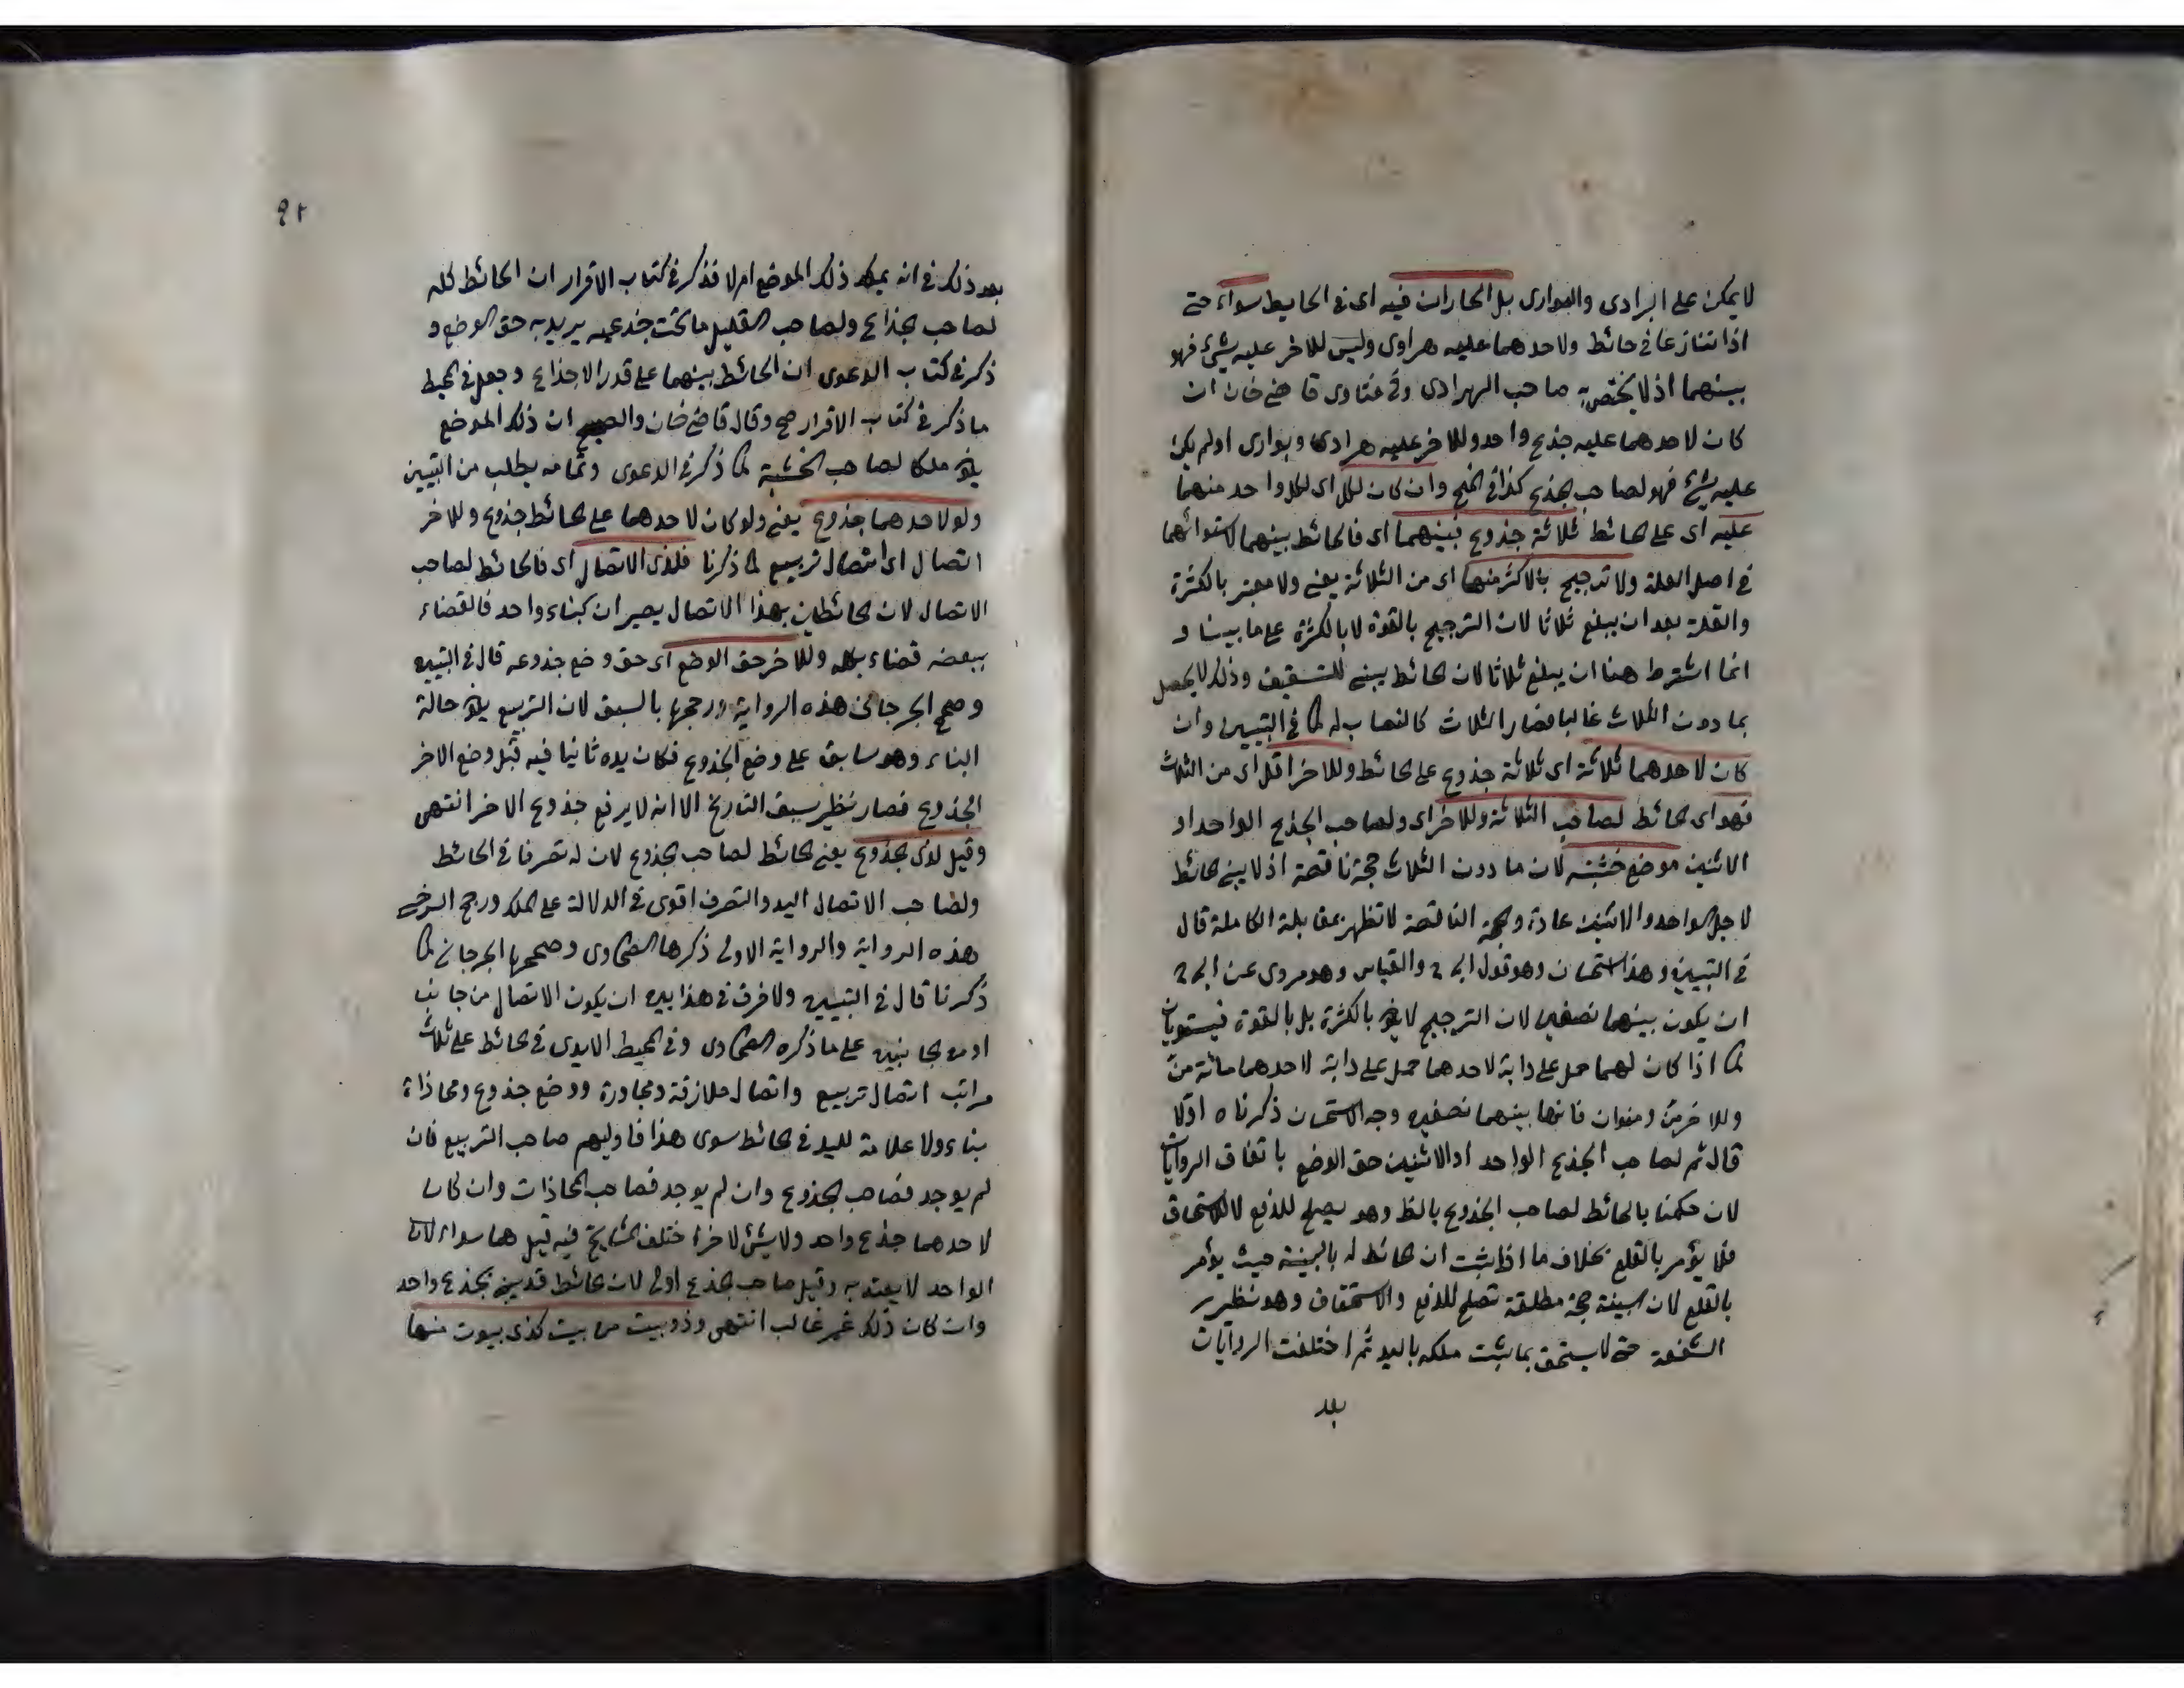 لا يمكن على الهرادى والبوارى بل الجاران فيه اى فى الحايط سواء حتى
اذا تنازعا فى حائط ولاحدهما عليه هراوى وليس للاخر عليه شئ فهو
بينهما اذ لا يختص به صاحب الهرادى وفى فتاوى قاضى خان ان
كان لاحدهما عليه جذع واحد وللاخر عليه هرادى وبوارى اولم يكن
عليه شئ فهو لصاحب الجذع كذا فى المنح وان كان لكل اى لكل واحد منهما
عليه اى على الحائط ثلاثة جذوع فبينهما اى فالحائط بينهما لاستوائهما
فى اصل العلة ولا ترجيح بالاكثر منها اى من الثلاثة يعنى ولا معتبر بالكثرة
والقلة بعد ان يبلغ ثلاثا لان الترجيح بالقوة لا بالكثرة على ما بينا و
انما اشترط هنا ان يبلغ ثلاثا لان الحائط يبنى للتسقيف وذلك لا يحصل
بما دون الثلاث غالبا فصار الثلاث كالنصاب له كما فى التبيين وان
كان لاحدهما ثلاثة اى ثلاثة جذوع على الحائط وللاخر اقل اى من الثلاث
فهو اى الحائط لصاحب الثلاثة وللاخر اى ولصاحب الجذع الواحد او
الاثنين موضع خشبته لان ما دون الثلاث حجة ناقصة اذ لا يبنى الحائط
لاجل الواحد والاثنين عادة والحجة الناقصة لا تظهر بمقابلة الكاملة قال
فى التبيين وهذا استحسان وهو قول ابى ح والقياس وهو مروى عن ابى ح
ان يكون بينهما نصفين لان الترجيح لا يقع بالكثرة بل بالقوة فيستويان
كما اذا كان لهما حمل على دابة لاحدهما حمل على دابة لاحدهما مائة من
وللاخر من ومنوان فانها بينهما نصفين وجه الاستحسان ذكرناه اولا
قال ثم لصاحب الجذع الواحد او الاثنين حق الوضع باتفاق الروايات
لان حكمنا بالحائط لصاحب الجذوع بالظ وهو يصلح للدفع لا للاستحقاق
فلا يؤمر بالقلع بخلاف ما اذا ثبت ان الحائط له بالبينة حيث يؤمر
بالقلع لان البينة حجة مطلقة تصلح للدفع والاستحقاق وهو نظير
الشفعة حتى لا يستحق بما يثبت ملكه باليد ثم اختلفت الروايات
بعد
٩٢
بعد ذلك فى انه يملك ذلك الموضع ام لا فذكر فى كتاب الاقرار ان الحائط كله
لصاحب الجذاع ولصاحب القليل ما تحت جذعه يريد به حق الوضع و
ذكر فى كتاب الدعوى ان الحائط بينهما على قدر الاجذاع وجعل فى المحيط
ما ذكر فى كتاب الاقرار صح وقال قاضى خان والصحيح ان ذلك الموضع
يكون ملكا لصاحب الخشبة كما ذكر فى الدعوى وتمامه يطلب من التبيين
ولو لاحدهما جذوع يعنى ولو كان لاحدهما على الحائط جذوع وللاخر
اتصال اى اتصال تربيع كما ذكرنا فلذى الاتصال اى فالحائط لصاحب
الاتصال لان الحائطين بهذا الاتصال يصيران كبناء واحد فالقضاء
ببعضه قضاء بكله وللاخر حق الوضع اى حق وضع جذوعه قال فى التبيين
وصحح الجرجانى هذه الرواية ورجحها بالسبق لان التربيع يكون حالة
البناء وهو سابق على وضع الجذوع فكان يده ثانيا فيه قبل وضع الاخر
الجذوع فصار نظير سبق التاريخ الا انه لا يرفع جذوع الاخر انتهى
وقيل لذى الجذوع يعنى الحائط لصاحب الجذوع لان له تصرفا فى الحائط
ولصاحب الاتصال اليد والتصرف اقوى فى الدلالة على الملك ورجح السرخسى
هذه الرواية والرواية الاولى ذكرها الطحاوى وصححها الجرجانى كما
ذكرنا قال فى التبيين ولا فرق فى هذا بين ان يكون الاتصال من جانب
او من الجانبين على ما ذكره الطحاوى وفى المحيط الايدى فى الحائط على ثلث
مراتب اتصال تربيع واتصال ملازقة ومجاورة ووضع جذوع ومحاذاة
بناء ولا علامة لليد فى الحائط سوى هذا فاوليهم صاحب التربيع فان
لم يوجد فصاحب الجذوع وان لم يوجد فصاحب المحاذات وان كان
لاحدهما جذع واحد ولا شئ لاخر اختلف المشايخ فيه قيل هما سواء لان
الواحد لا يعتد به وقيل صاحب الجذع اولى لان الحائط قد يبنى بجذع واحد
وان كان ذلك غير غالب انتهى وذو بيت من بيت كذى بيوت منها